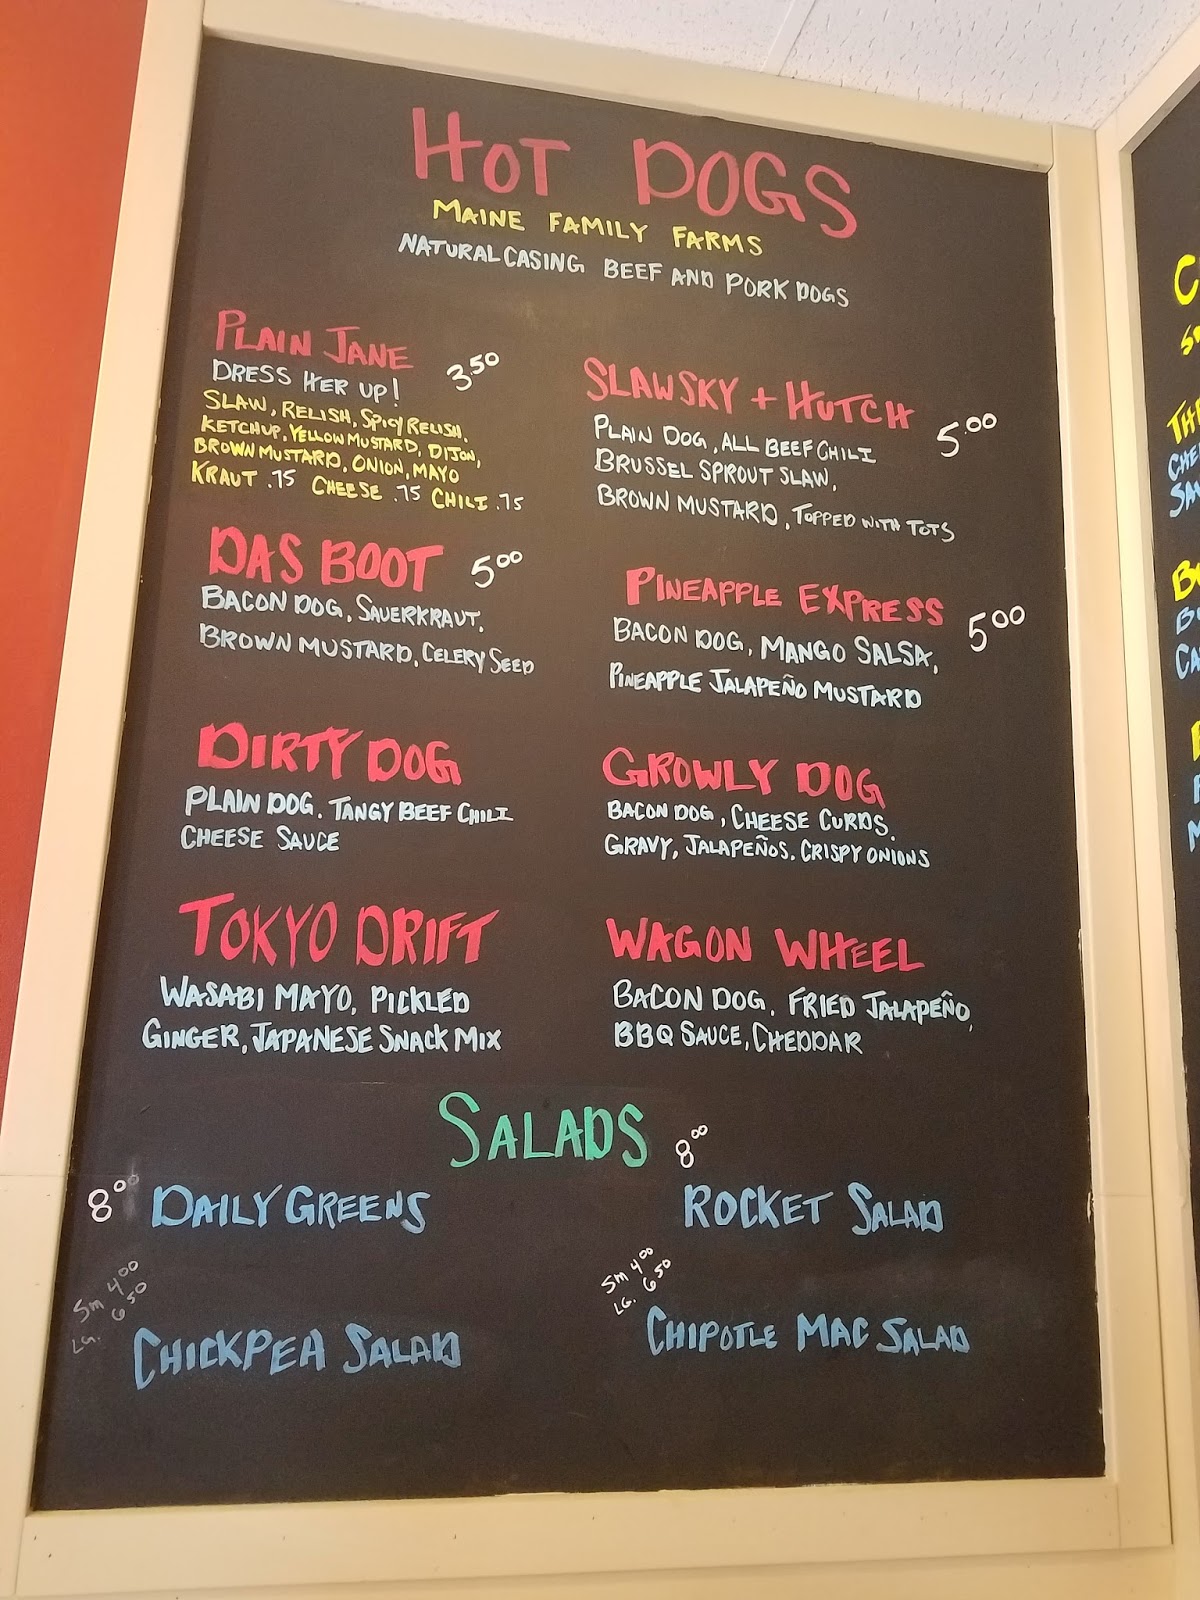 HOT DOGS
MAINE FAMILY FARMS
NATURAL CASING BEEF AND PORK DOGS
PLAIN JANE 3.50
DRESS HER UP!
SLAW, RELISH, SPICY RELISH.
KETCHUP, YELLOW MUSTARD, DIJON,
BROWN MUSTARD, ONION, MAYO
KRAUT .75 CHEESE .75 CHILI .75
DAS BOOT 5.00
BACON DOG, SAUERKRAUT,
BROWN MUSTARD, CELERY SEED
DIRTY DOG
PLAIN DOG, TANGY BEEF CHILI
CHEESE SAUCE
TOKYO DRIFT
WASABI MAYO, PICKLED
GINGER, JAPANESE SNACK MIX
SLAWSKY + HUTCH 5.00
PLAIN DOG, ALL BEEF CHILI
BRUSSEL SPROUT SLAW,
BROWN MUSTARD, TOPPED WITH TOTS
PINEAPPLE EXPRESS 5.00
BACON DOG, MANGO SALSA,
PINEAPPLE JALAPEÑO MUSTARD
GROWLY DOG
BACON DOG, CHEESE CURDS,
GRAVY, JALAPEÑOS, CRISPY ONIONS
WAGON WHEEL
BACON DOG, FRIED JALAPEÑO,
BBQ SAUCE, CHEDDAR
SALADS
8.00 DAILY GREENS
8.00
ROCKET SALAD
Sm 4.00
LG. 6.50
CHICKPEA SALAD
Sm 4.00
LG. 6.50
CHIPOTLE MAC SALAD